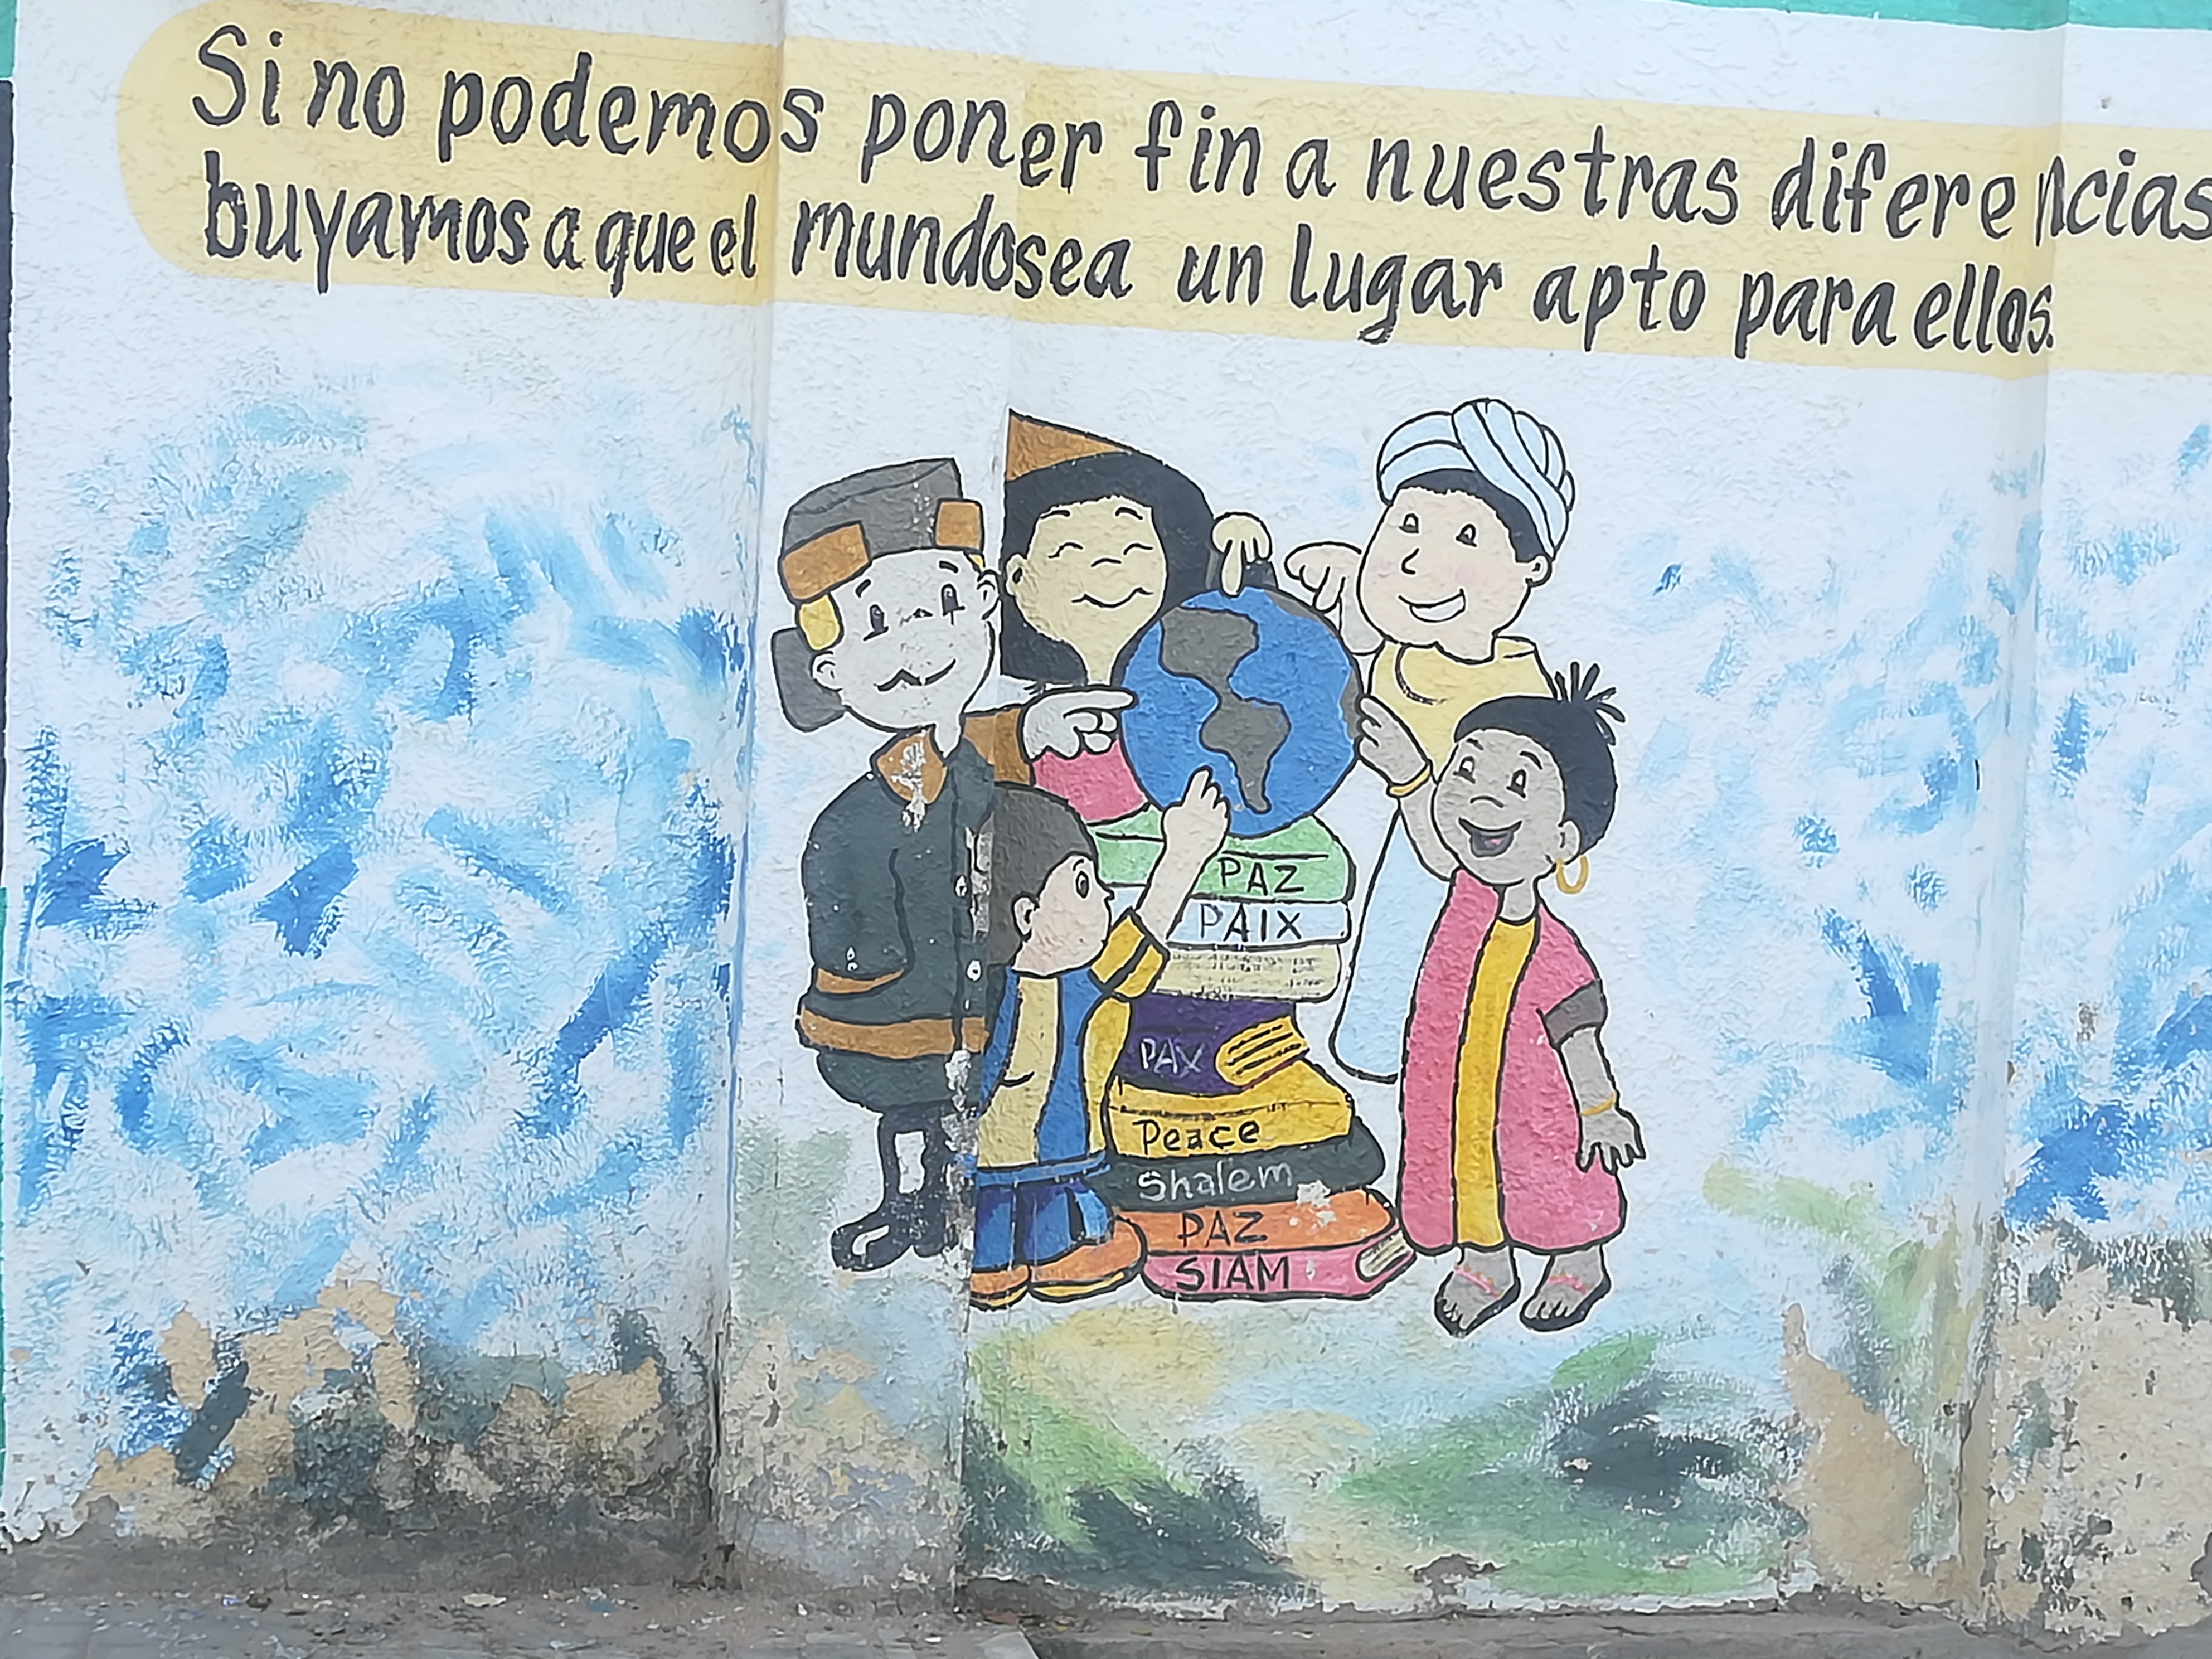 Si no podemos poner fin a nuestras diferencias
buyamos a que el mundo sea un lugar apto para ellos.
PAZ
PAIX
PAX
Peace
Shalem
PAZ
SIAM